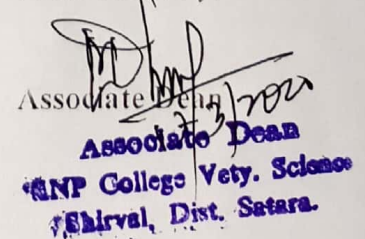 Associate Dean
3/2020
Associate Dean
KNP College Vety. Science
Shirval, Dist. Satara.